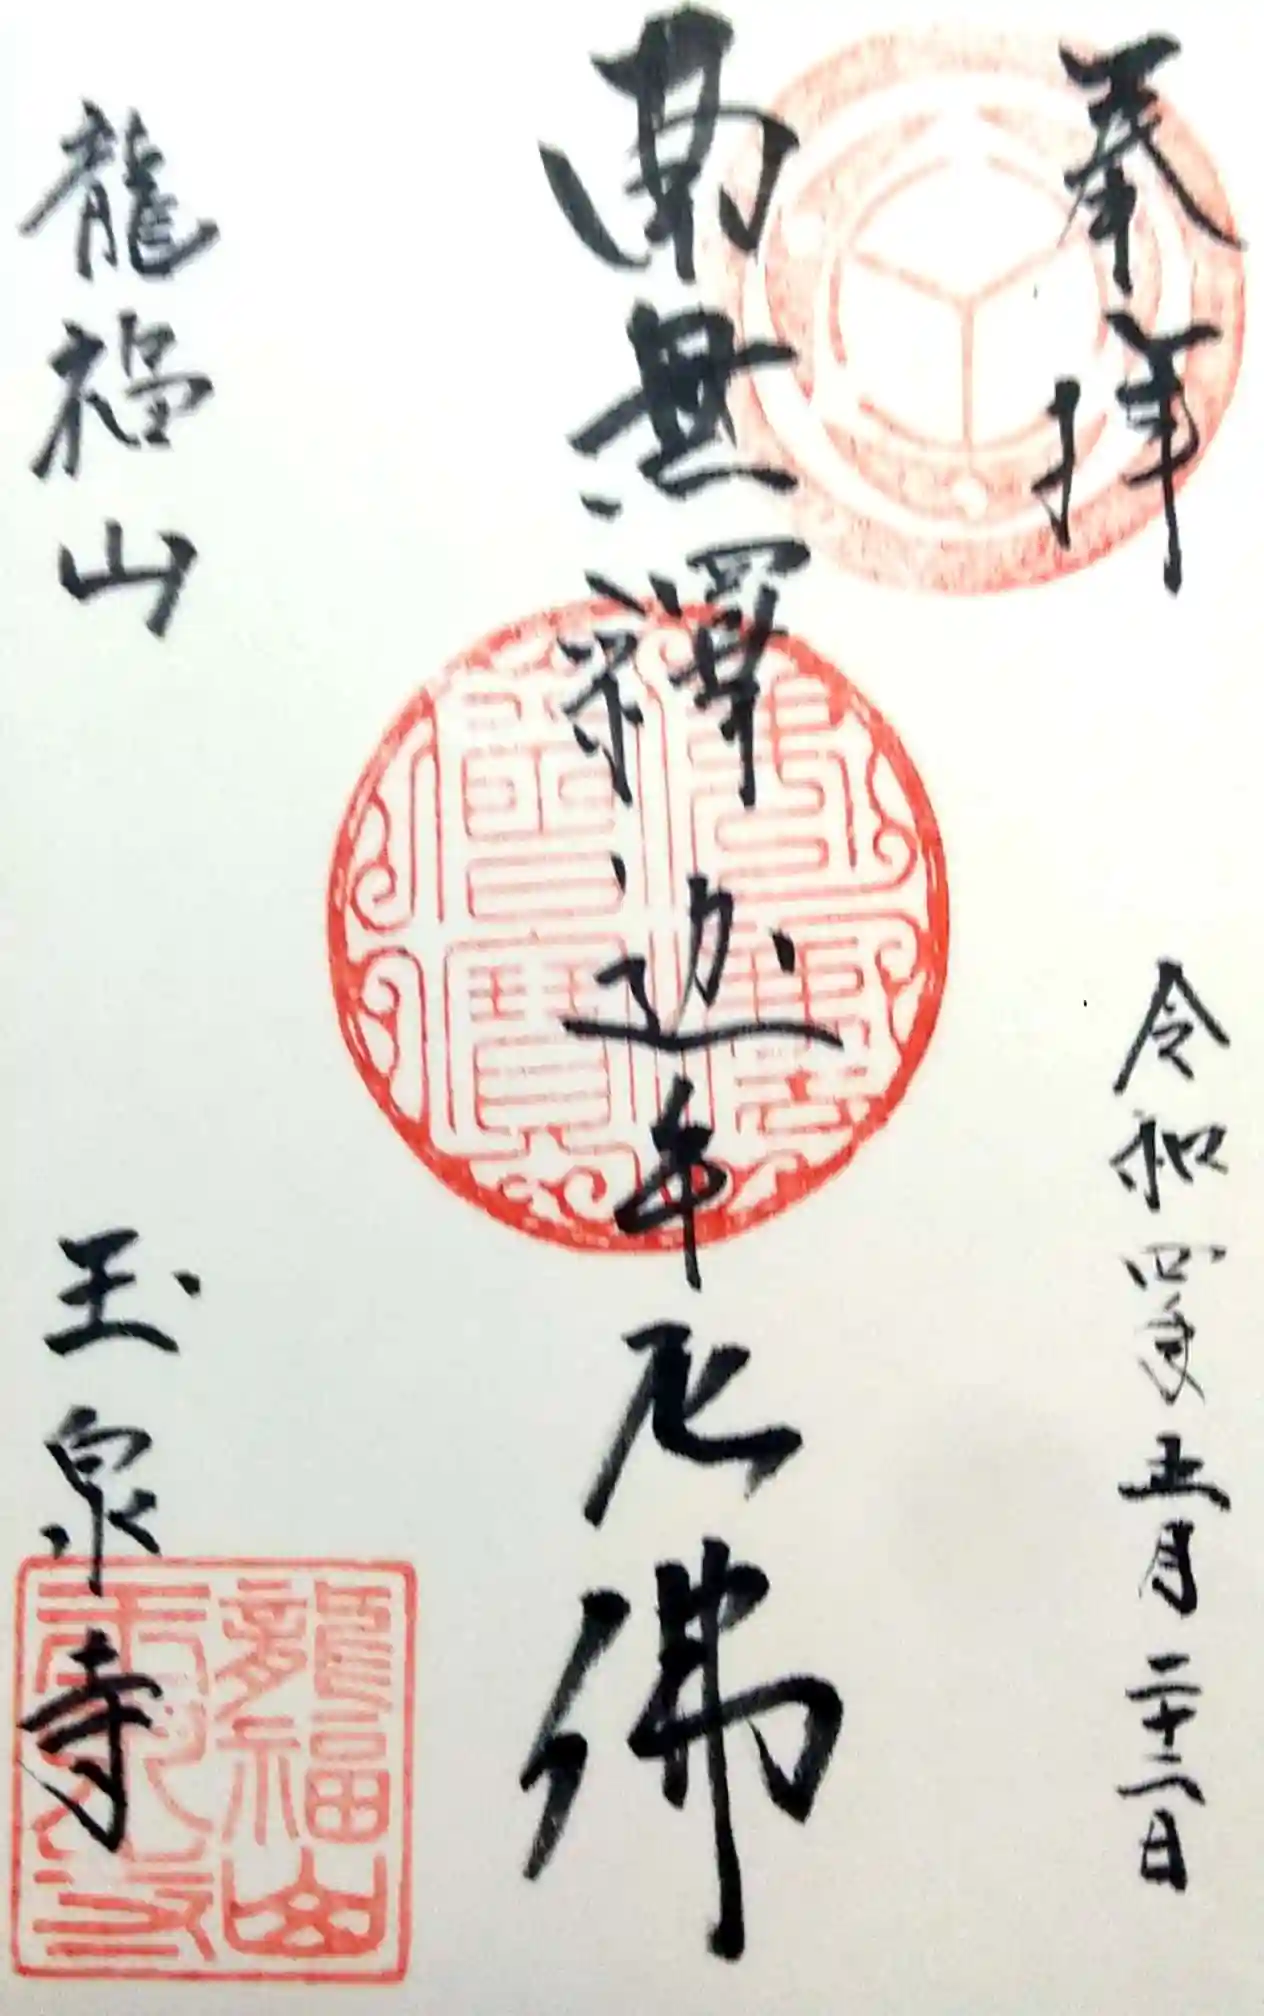 奉拝
令和四年五月二十二日
南無釋迦牟尼佛
龍福山
玉泉寺
佛法僧寳
龍福山
玉泉寺